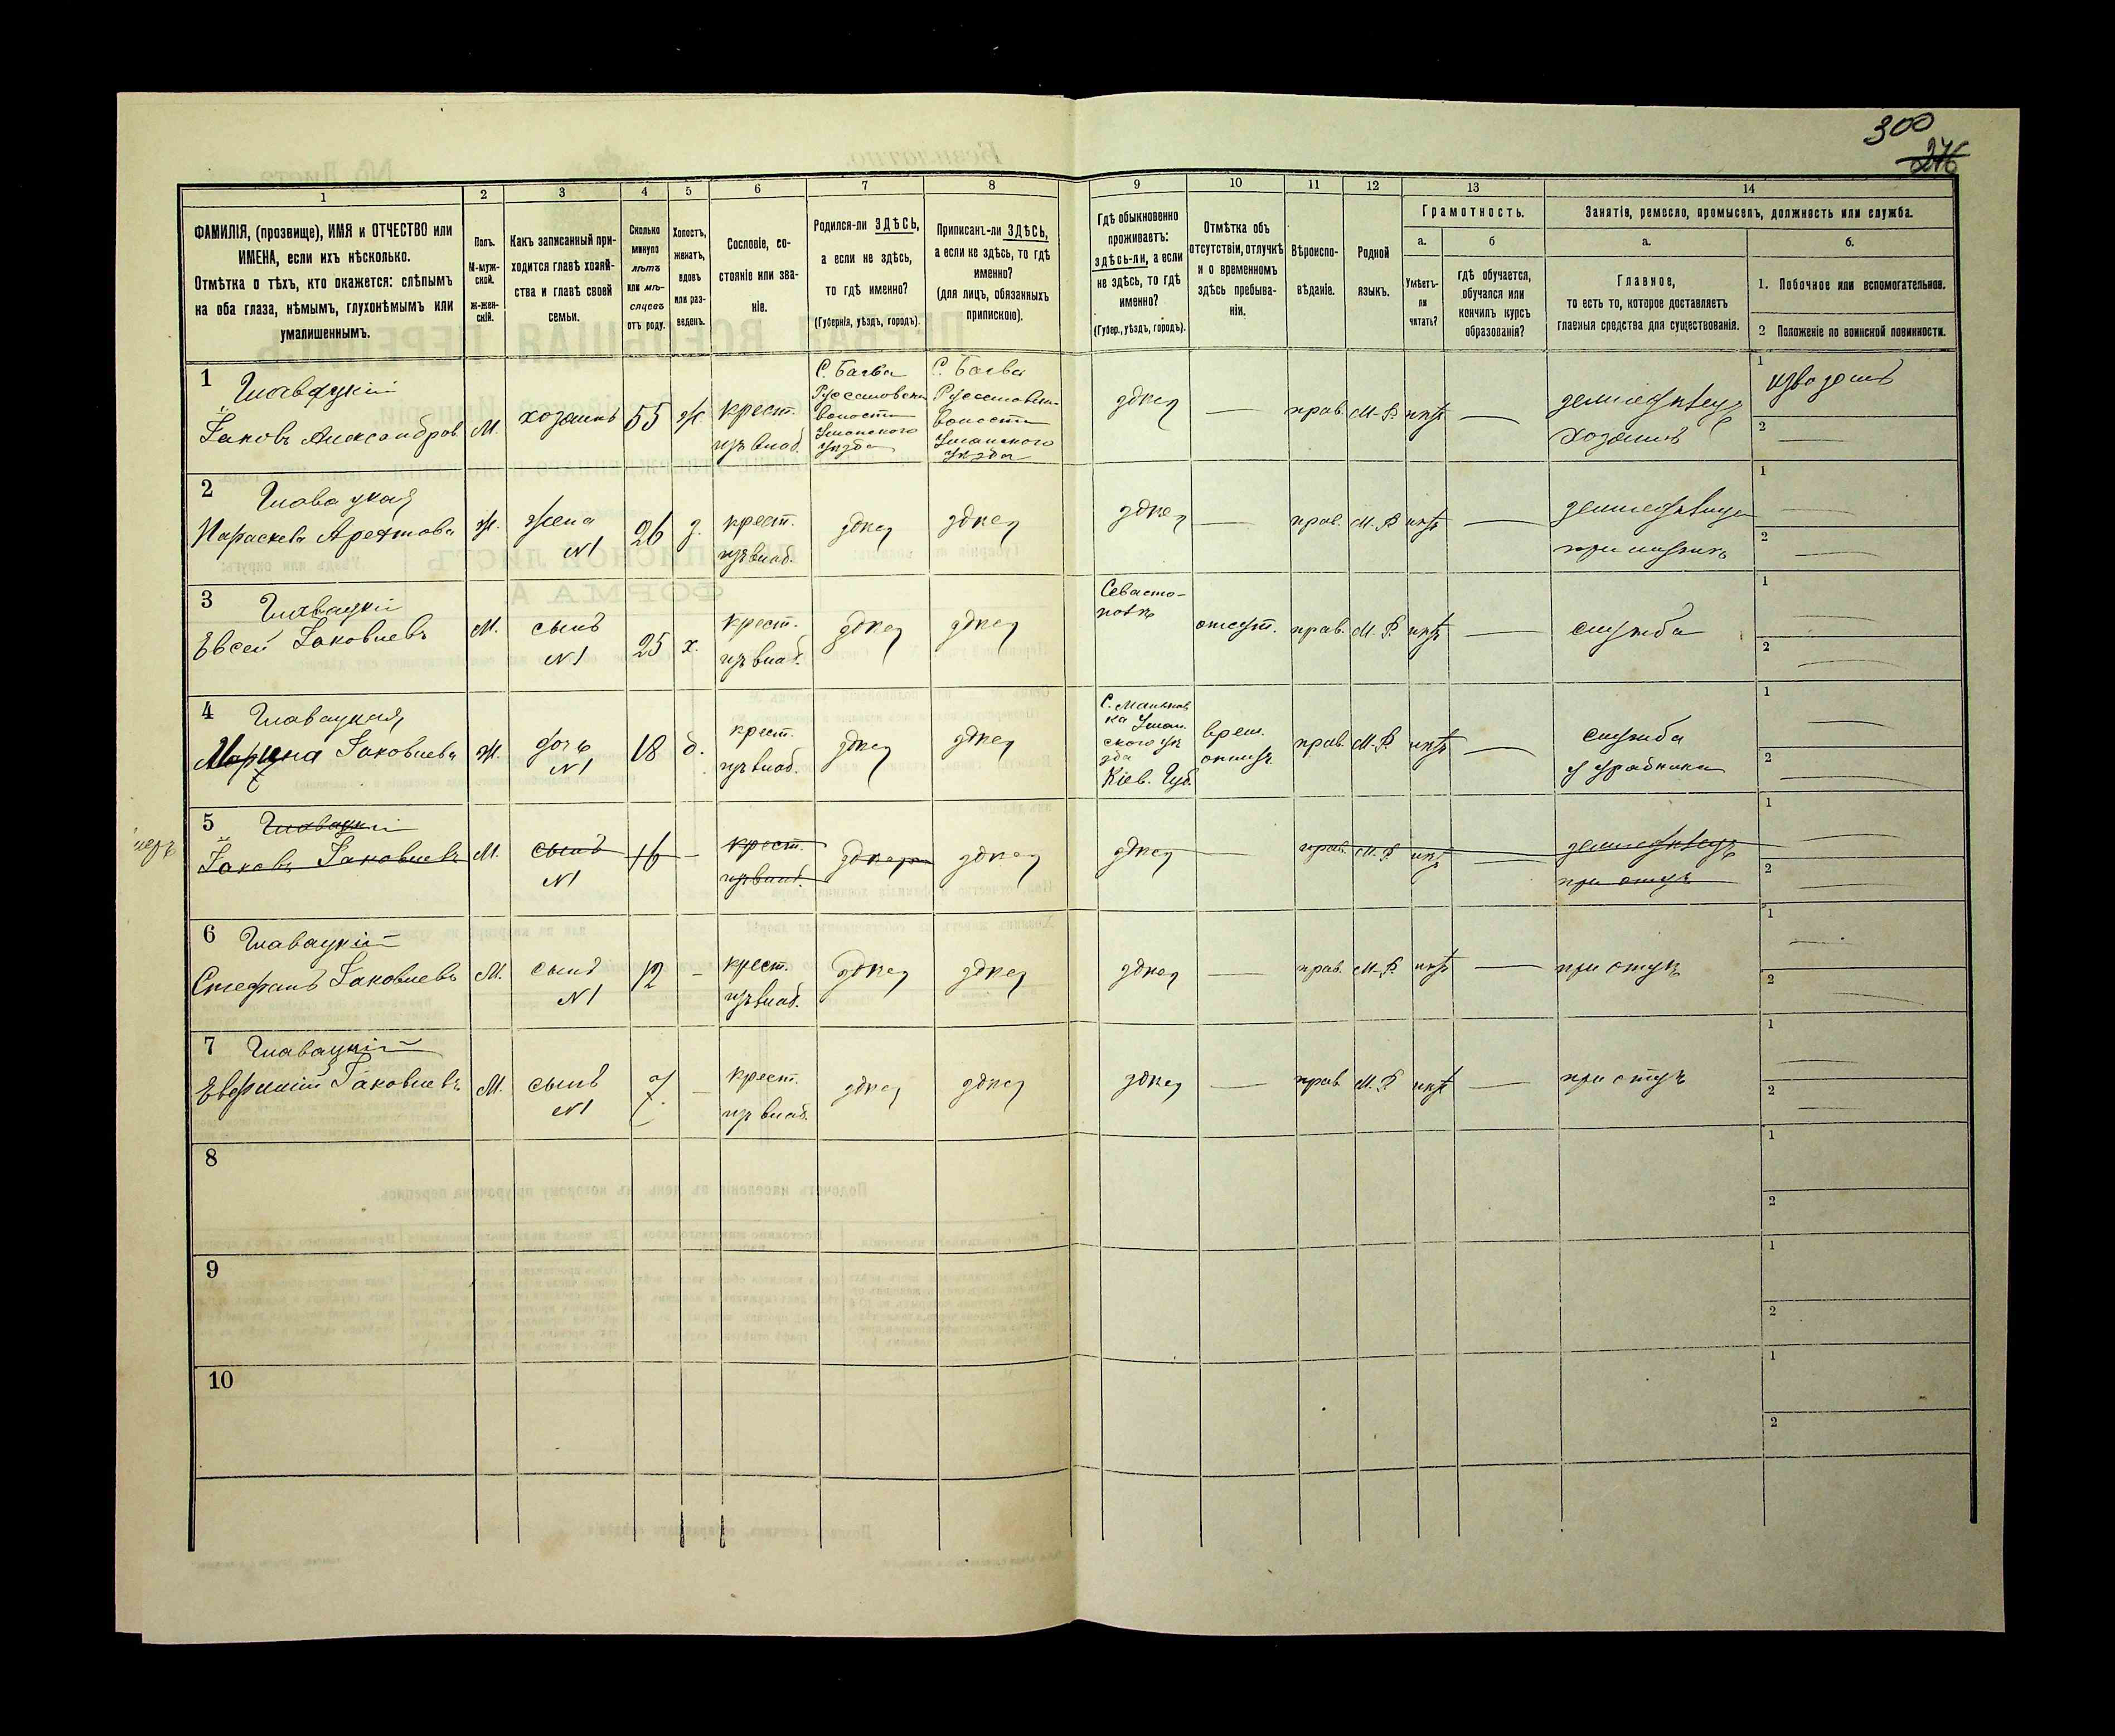 300
276
1
2
3
4
5
6
7
8
9
10
11
12
13
14
ФАМИЛІЯ, (прозвище), ИМЯ и ОТЧЕСТВО или
ИМЕНА, если ихъ нѣсколько.
Отмѣтка о тѣхъ, кто окажется: слѣпымъ
на оба глаза, нѣмымъ, глухонѣмымъ или
умалишеннымъ.
Полъ.
М-муж-
ской.
ж-жен-
скій.
Какъ записанный при-
ходится главѣ хозяй-
ства и главѣ своей
семьи.
Сколько
минуло
лѣтъ
или мѣ-
сяцевъ
отъ роду.
Холостъ,
женатъ,
вдовъ
или раз-
веденъ.
Сословіе, со-
стояніе или зва-
ніе.
Родился-ли ЗДѢСЬ,
а если не здѣсь,
то гдѣ именно?
(Губернія, уѣздъ, городъ).
Приписанъ-ли ЗДѢСЬ,
а если не здѣсь, то гдѣ
именно?
(для лицъ, обязанныхъ
припискою).
Гдѣ обыкновенно
проживаетъ:
здѣсь-ли, а если
не здѣсь, то гдѣ
именно?
(Губер., уѣздъ, городъ).
Отмѣтка объ
отсутствіи, отлучкѣ
и о временномъ
здѣсь пребыва-
ніи.
Вѣроиспо-
вѣданіе.
Родной
языкъ.
Грамотность.
а.
Умѣетъ-
ли
читать?
б
гдѣ обучается,
обучался или
кончилъ курсъ
образованія?
Занятіе, ремесло, промыселъ, должность или служба.
а.
Главное,
то есть то, которое доставляетъ
главныя средства для существованія.
б.
1. Побочное или вспомогательное.
2 Положеніе по воинской повинности.
1 Главацкій
Іаковъ Александров.
М.
хозяинъ
55
ж.
крест.
изъ влад.
С. Багва
Русаловской
волости
Уманскаго
уѣзда
С. Багва
Русаловской
волости
Уманского
уѣзда
здѣсь
—
прав.
М.-Р.
нѣтъ
—
земледѣлецъ
хозяинъ
1 извозъ
2 —
2 Главацкая
Параскева
ж.
жена
N1
26
з.
крест.
изъ влад.
здѣсь
здѣсь
здѣсь
—
прав.
М.-Р.
нѣтъ
—
земледѣлица
при мужѣ
1 —
2 —
3 Главацкій
Евсей Іаковлевъ
М.
сынъ
N1
25
х.
крест.
изъ влад.
здѣсь
здѣсь
Севасто-
отсут.
прав.
М.-Р.
нѣтъ
—
служба
1
2 —
4 Главацкая
Марина Іаковлева
ж.
дочь
N1
18
д.
крест.
изъ влад.
здѣсь
здѣсь
С. Маньков
ка Уман.
ского уѣ
зда
Кіев. Губ.
врем.
прав.
М.-Р.
нѣтъ
—
служба
у урядника
1 —
2 —
5 Главацкій
Іаковъ Іаковлевъ
М.
сынъ
N1
16
—
крест.
изъ влад.
здѣсь
здѣсь
здѣсь
—
прав.
М.-Р.
нѣтъ
—
земледѣлецъ
при отцѣ
1 —
2 —
6 Главацкій
Стефанъ Іаковлевъ
М.
сынъ
N1
12
—
крест.
изъ влад.
здѣсь
здѣсь
здѣсь
—
прав.
М.-Р.
нѣтъ
—
при отцѣ
1 —
2 —
7 Главацкій
Евфимій Іаковлевъ
М.
сынъ
N1
7
—
крест.
изъ влад.
здѣсь
здѣсь
здѣсь
—
прав
М.-Р.
нѣтъ
—
при отцѣ
1 —
2 —
8
1
2
9
1
2
10
1
2